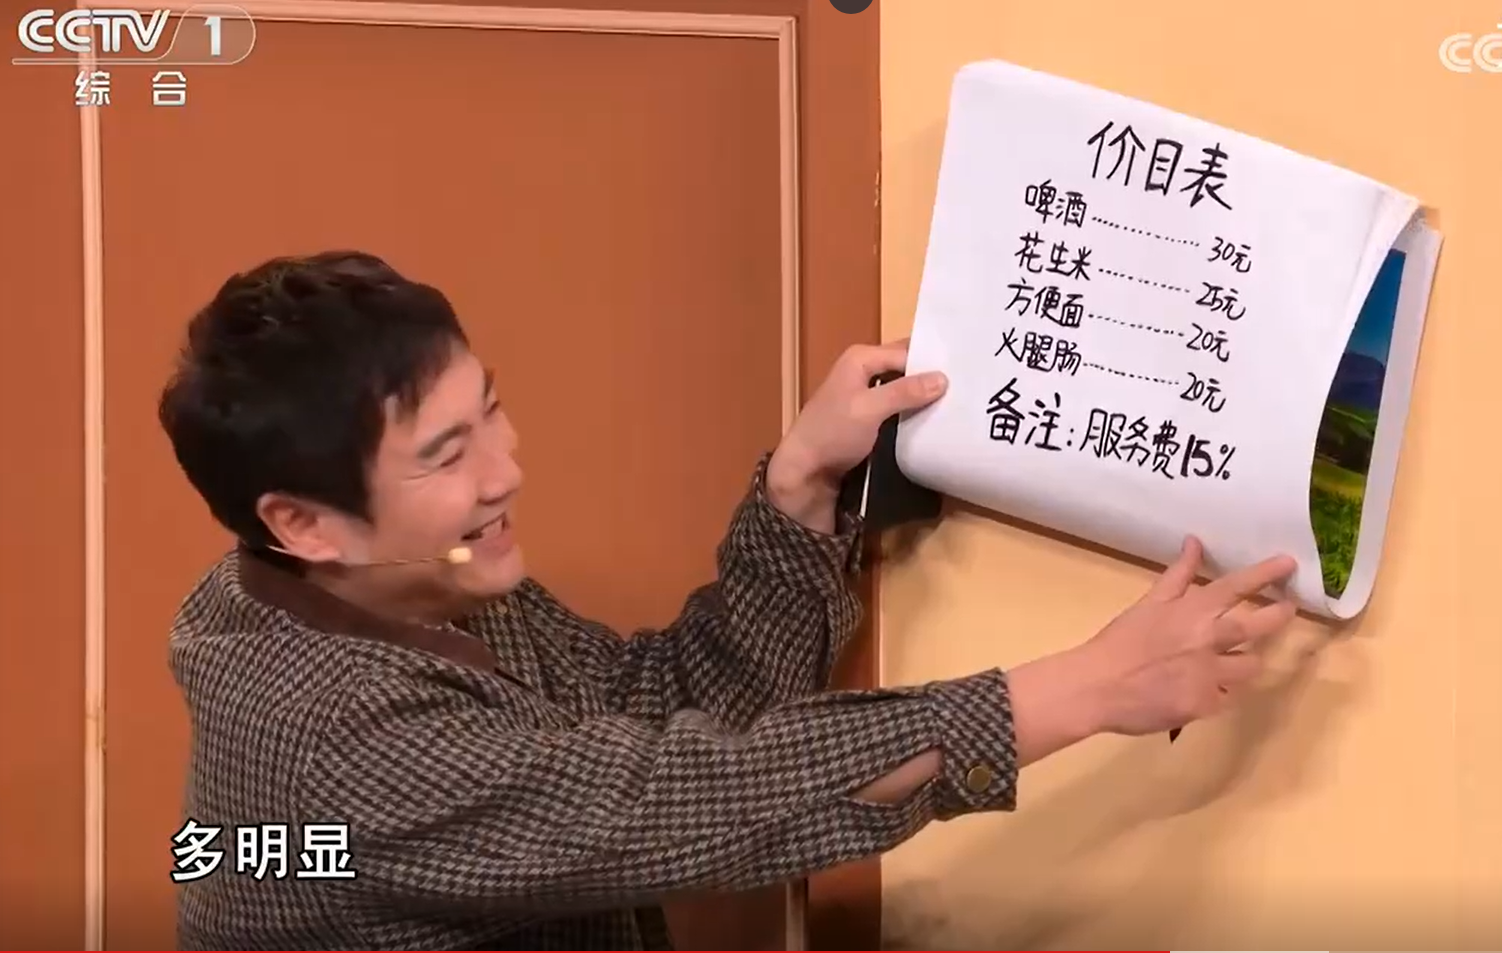 CCTV 1
综合
CC
价目表
啤酒............ 30元
花生米............ 25元
方便面............ 20元
火腿肠............ 20元
备注:服务费15%
多明显